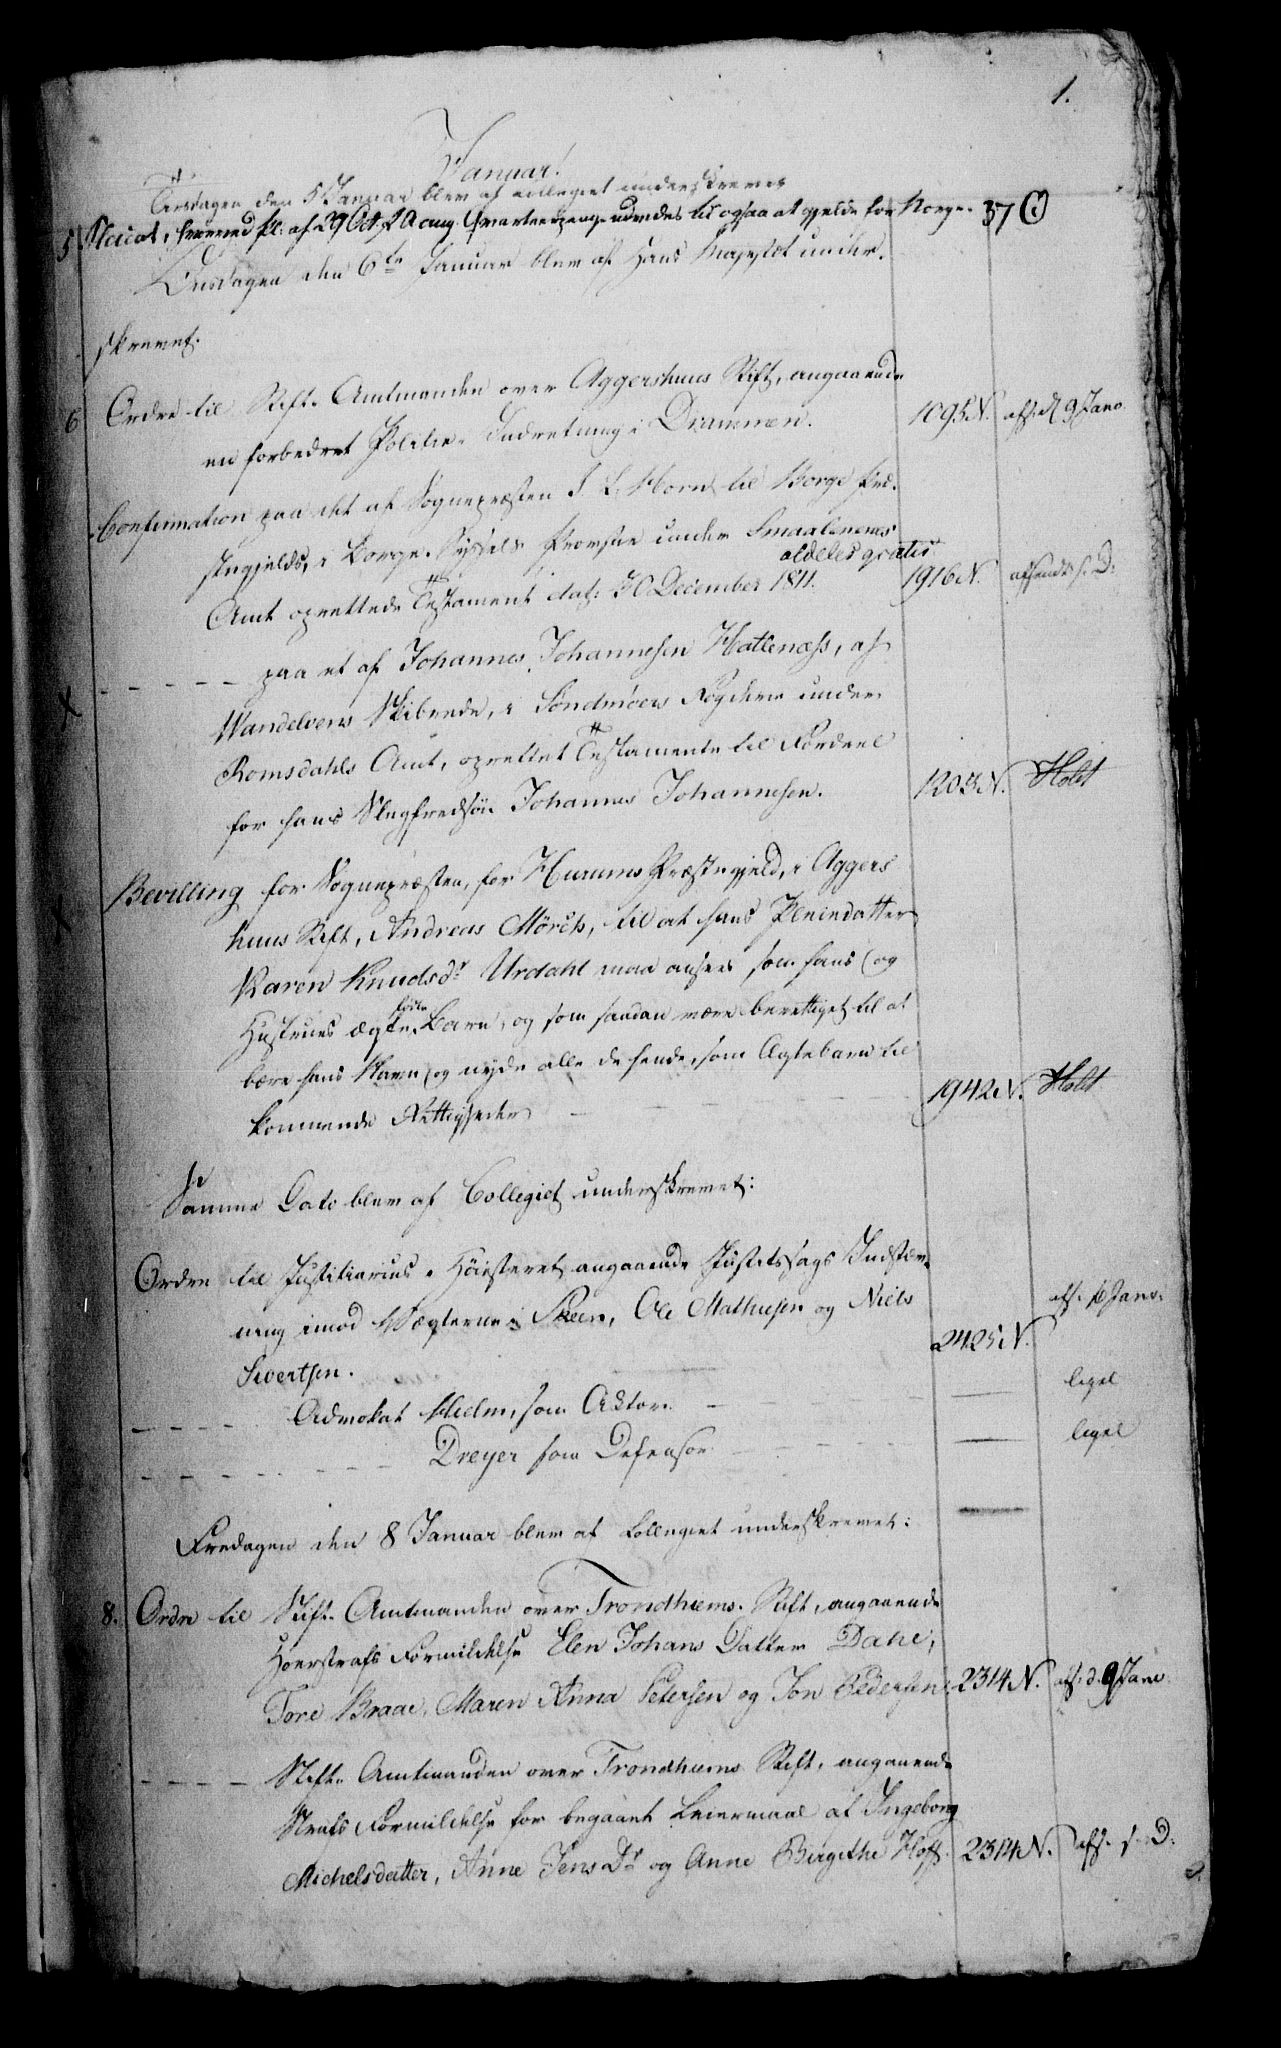 1.
Januar.
Tirsdagen den 5 Januar blev af Collegiet underskrevet
5 Placat, hvorved Pl. af 29 Oct. f. A. ang. Qvarteerpenge udvides til ogsaa at gjelde for Norge. 37 C)
Onsdagen den 6te Januar blev af Hans Majestæt under-
skrevet.
6 Ordre til Stift-Amtmanden over Aggershuus Stift, angaaende
en forbedret Politie-Indretning i Drammen. 1095 N. afs. d. 9 Janv.
Confirmation paa det af Sognepræsten J. L. Horn til Borge Præ-
stegjeld, i Borge-Syssels Provstie under Smaalenenes
aldeles gratis
Amt oprettede Testament dat: 30 December 1811. 1916 N. afsendt s. D:
- - - - - paa et af Johannes Johannesen Hatlenæss, af
Wandelvens Skibrede, i Søndmøers Fogderie under
Romsdahls Amt, oprettet Testamente til Fordeel
for hans Slegfredsøn Johannes Johannesen. 1203 N. Holst
Bevilling for Sognepræsten, for Hurums Præstegjeld, i Aggers
huus Stift, Andreas Mörch, til at hans Pleiedatter
Karen Knudsdr Urdahl maa ansees som hans (og
Hustrues ægte fødte Barn, og som saadan være berettiget til at
bære hans Navn (og nyde alle de hende, som Ægtebarn til
kommende Rettigheder 1942 N. Holst
Samme Dato blev af Collegiet underskrevet:
Ordre til Justitiarius i Höiesteret angaaende Justitssags Indstæv-
ning imod Vægterne i Skeen, Ole Mathiesen og Niels 2425 N. afs. Janv.
Sivertsen.
- - - - Advokat Hielm, som Aktor. - ligel
- - - - - - - Dreyer som Defensor - - - - ligel
Fredagen den 8 Januar blev af Collegiet underskrevet:
8. Ordre til Stift-Amtmanden over Trondhiems-Stift, angaaende
Hoerstrafs Formildelse Elen Johans Datter Dahl,
Tore Braae, Maren Anna Petersen og Jon Pedersen. 2314 N. afs. d. 9 Janv.
- - - - Stift-Amtmanden over Trondhiems Stift, angaaende
Strafs Formildelse for begaaet Leiermaal af Ingeborg
Michelsdatter, Anne Jens Dr og Anne Birgithe Hoff. 2314 N. afs. s. D: